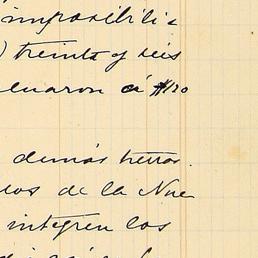 imposibili
) treinta y seis
eluaron á $120
demás tierras.
los de la Nue
integren los